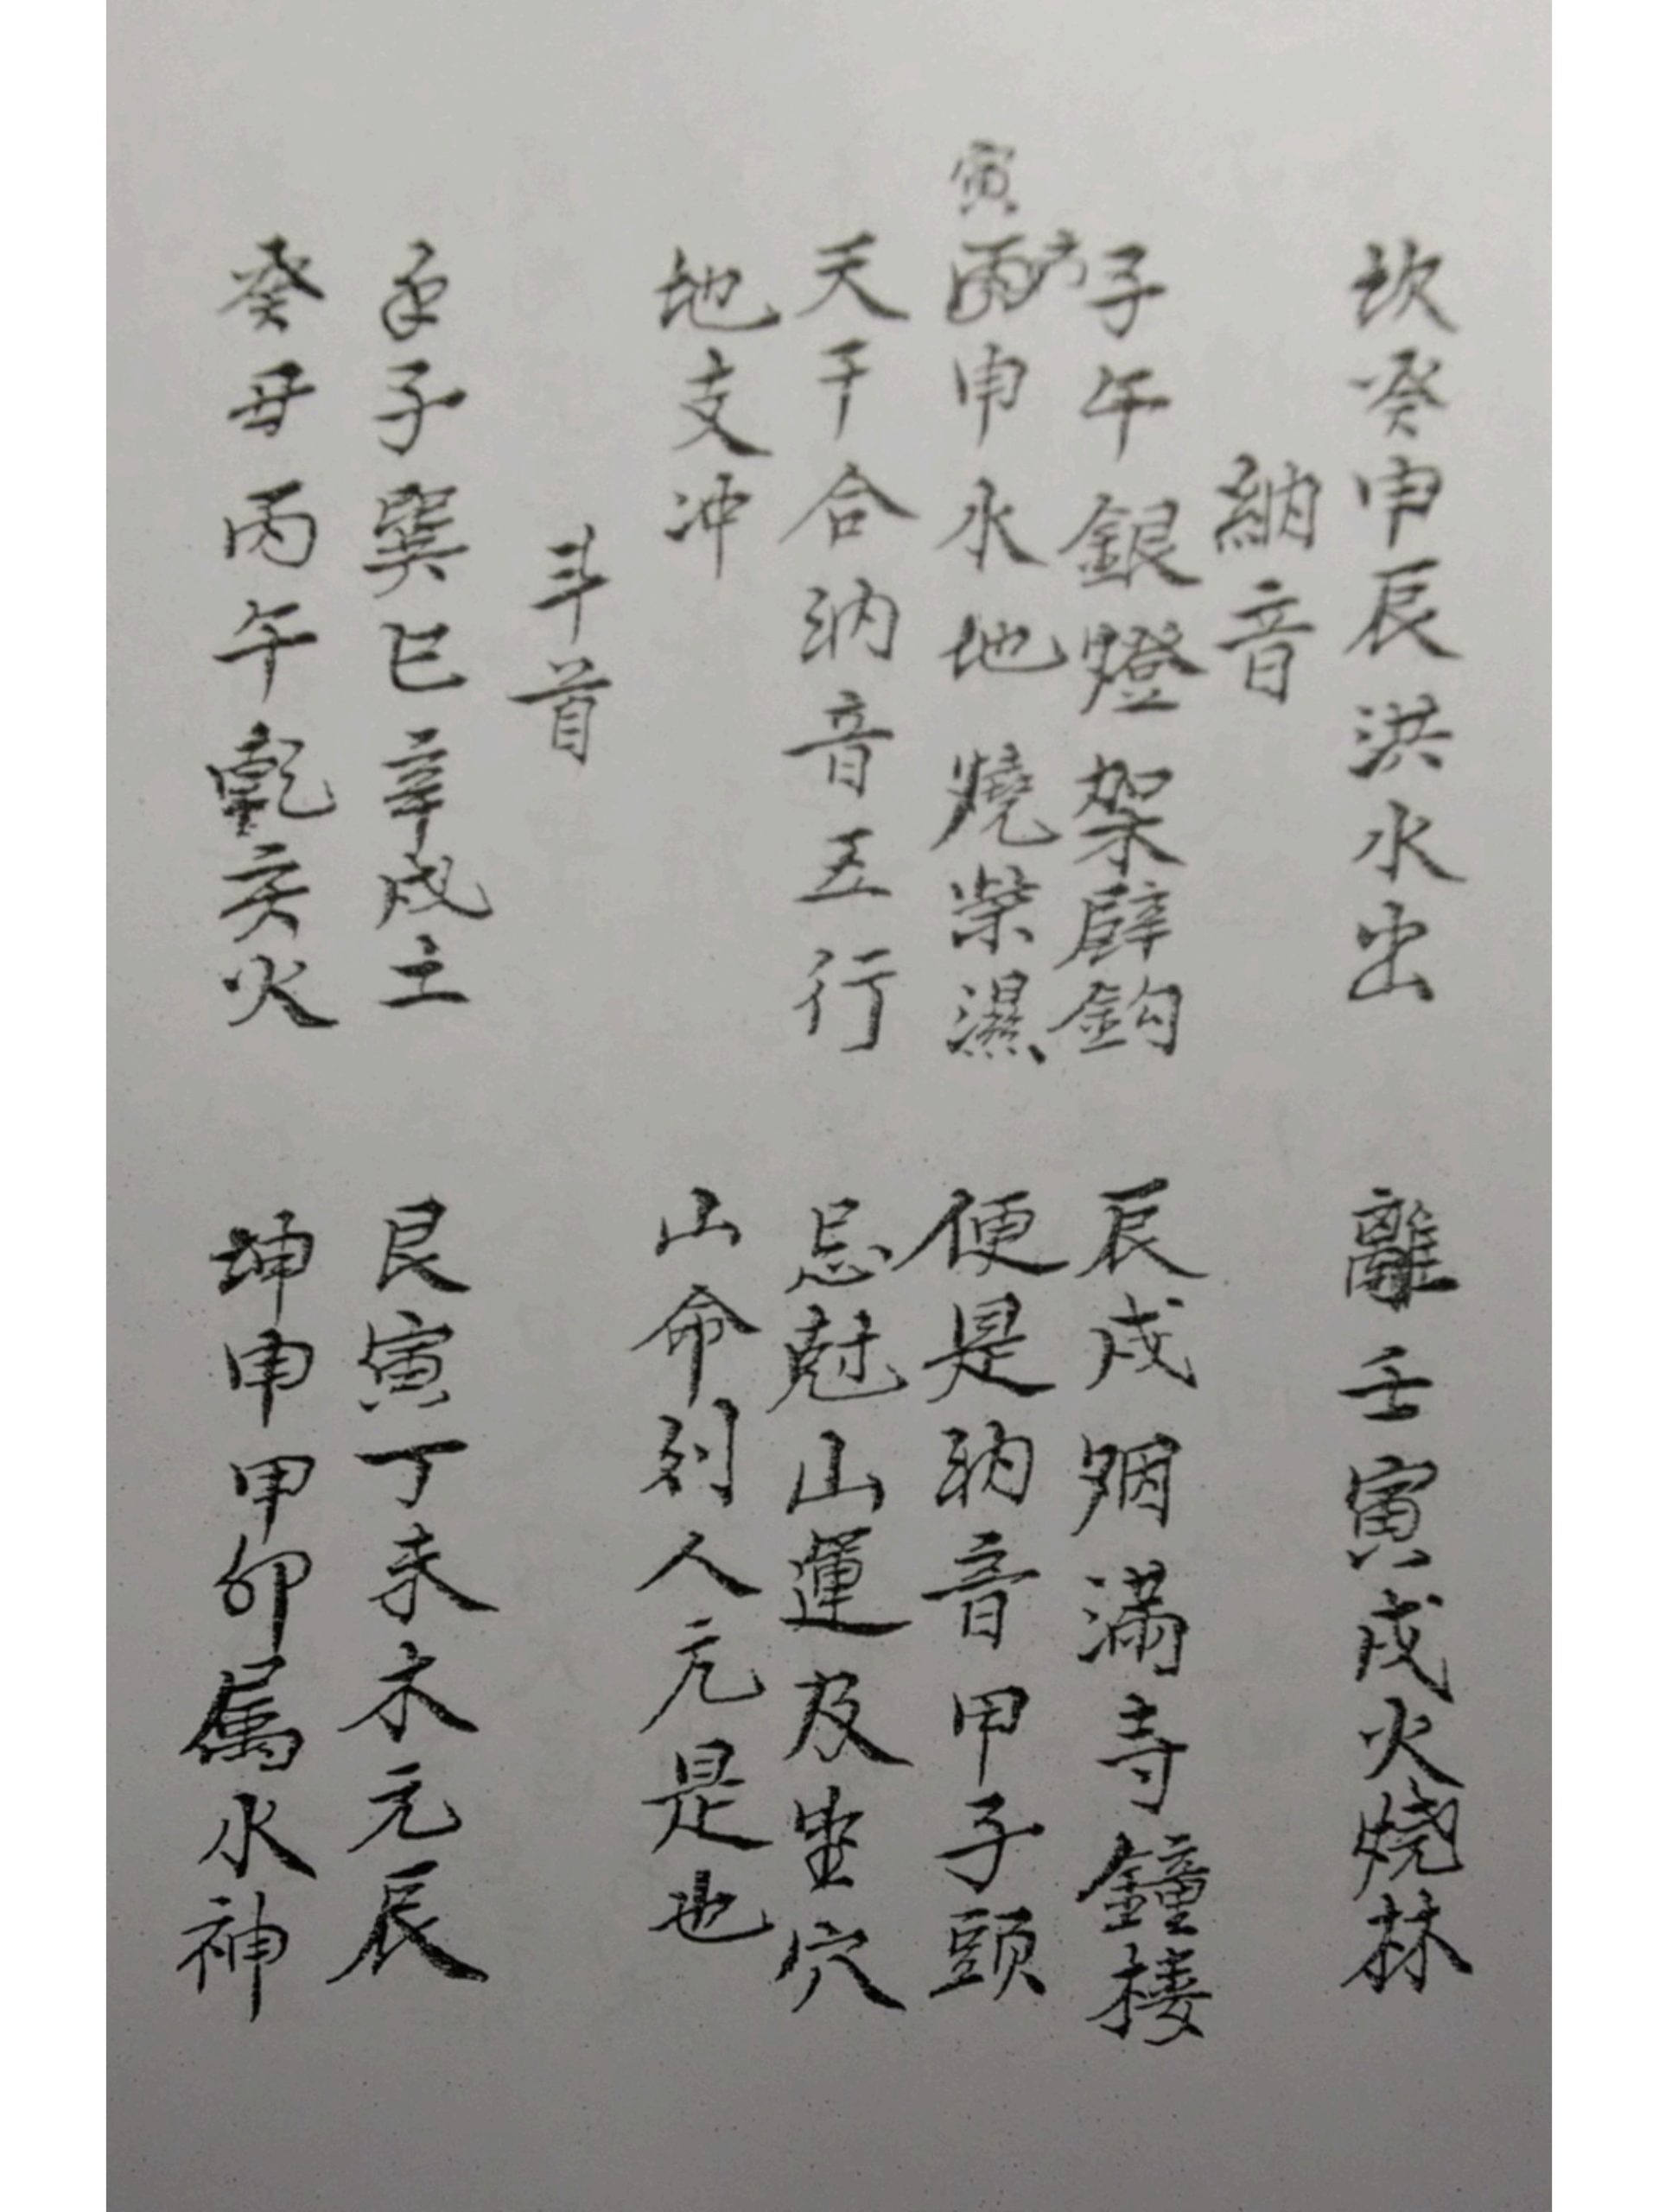 坎癸申辰洪水出　離壬寅戌火燒林
納音
子午銀燈架壁鈎　辰戌烟滿寺鐘樓
寅申水地燒柴濕　便是納音甲子頭
天干合納音五行　忌尅山運及坐穴
地支冲　山命刘人元是也
斗首
子巽巳辛戌土　艮寅丁未木元辰
癸丑丙午乾亥火　坤申甲卯属水神